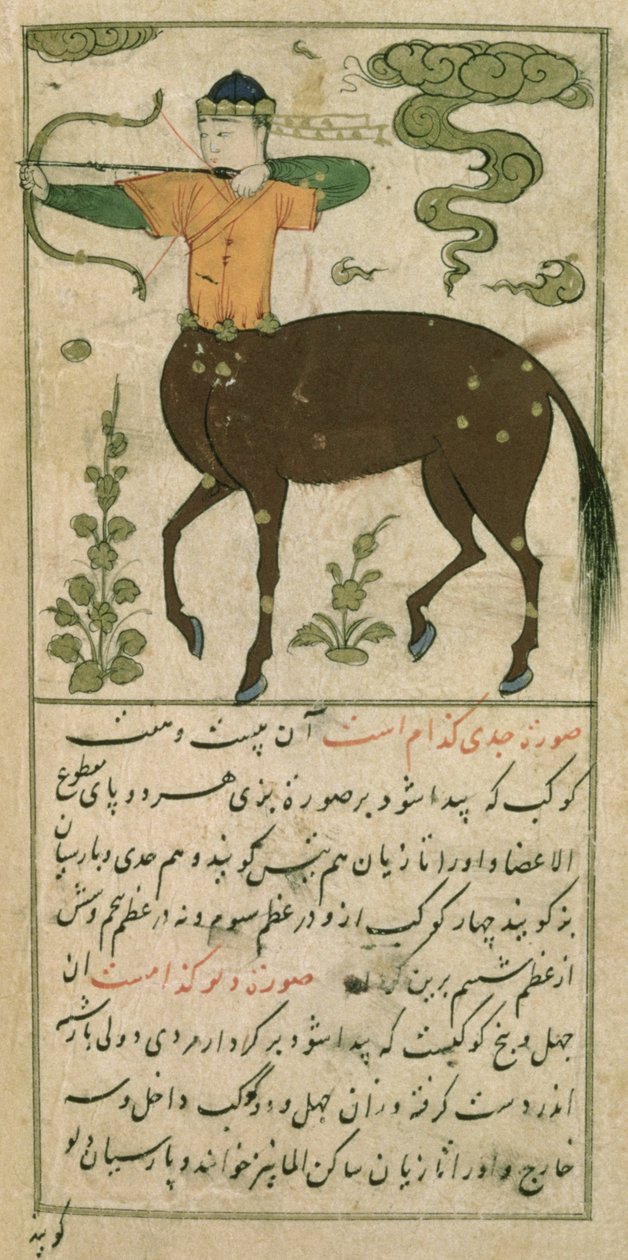 صورة جدی کدام است آن بیست و هشت
کوکب که پیدا شود بر صورة بزی هر دو پای مقطوع
الاعضا و اورا تازیان هم تیس کویند و هم جدی و پارسیان
بز کویند چهار کوکب ازو در عظم سوم و نه در عظم پنجم و شش
از عظم ششم برین کردار صورة دلو کدامست ان
چهل و پنج کوکبست که پیدا شود بر کردار مردی دولی بارشته
اندر دست کرفته وزان چهل و دو کوکب داخل و سه
خارج و اورا تازیان ساکن الما نیز خوانند و پارسیان دلو
کویند